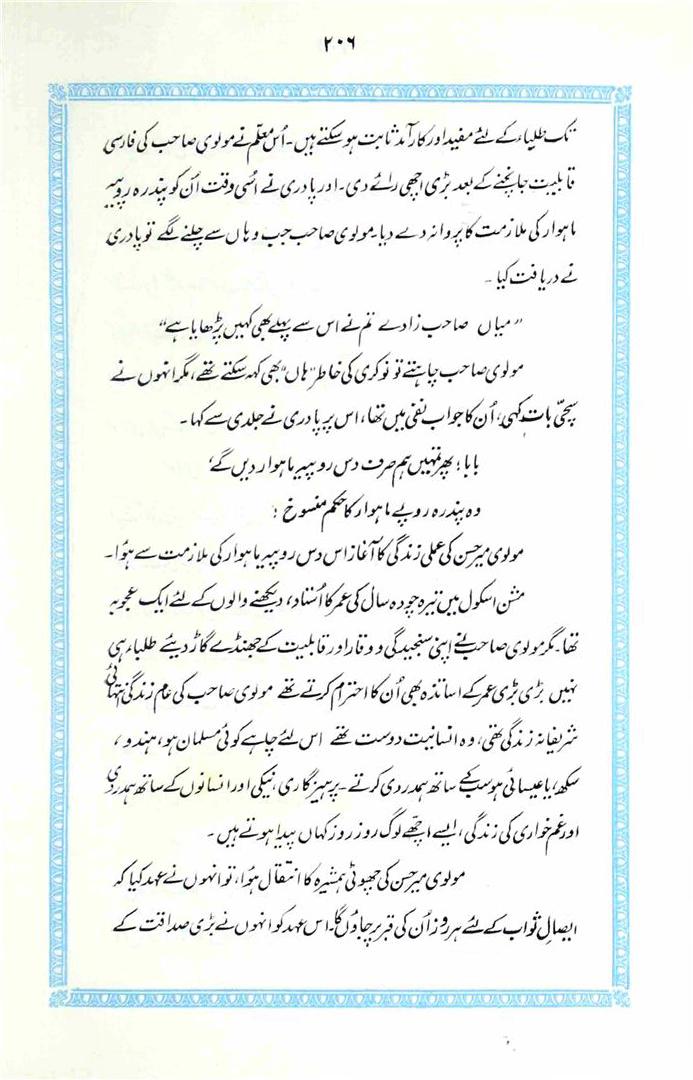 ۲۰۶
تک طلباء کے لئے مفید اور کارآمد ثابت ہو سکتے ہیں۔ اُس معلّم نے مولوی صاحب کی فارسی
قابلیت جانچنے کے بعد بڑی اچھی رائے دی۔ اور پادری نے اُسی وقت اُن کو پندرہ روپیہ
ماہوار کی ملازمت کا پروانہ دے دیا۔ مولوی صاحب جب وہاں سے چلنے لگے تو پادری
نے دریافت کیا۔
”میاں صاحب زادے تم نے اس سے پہلے بھی کہیں پڑھایا ہے“
مولوی صاحب چاہتے تو نوکری کی خاطر ”ہاں“ بھی کہہ سکتے تھے، مگر انہوں نے
سچّی بات کہی، اُن کا جواب نفی میں تھا، اس پر پادری نے جلدی سے کہا۔
بابا؛ پھر تمہیں ہم صرف دس روپیہ ماہوار دیں گے‘
وہ پندرہ روپے ماہوار کا حکم منسوخ؛
مولوی میر حسن کی عملی زندگی کا آغاز اس دس روپیہ ماہوار کی ملازمت سے ہُوا۔
مشن اسکول میں تیرہ چودہ سال کی عمر کا اُستاد، دیکھنے والوں کے لئے ایک عجوبہ
تھا۔ مگر مولوی صاحب نے اپنی سنجیدگی و وقار اور قابلیت کے جھنڈے گاڑ دیئے طلباء ہی
نہیں بڑی بڑی عمر کے اساتذہ بھی اُن کا احترام کرتے تھے مولوی صاحب کی عام زندگی انتہائی
شریفانہ زندگی تھی، وہ انسانیت دوست تھے اس لئے چاہے کوئی مسلمان ہو، ہندو،
سکھ، یا عیسائی ہو سب کے ساتھ ہمدردی کرتے۔ پرہیزگاری، نیکی اور انسانوں کے ساتھ ہمدردی
اور غم خواری کی زندگی، ایسے اچھے لوگ روز روز کہاں پیدا ہوتے ہیں۔
مولوی میر حسن کی چھوٹی ہمشیرہ کا انتقال ہُوا، تو انہوں نے عہد کیا کہ
ایصالِ ثواب کے لئے ہر روز اُن کی قبر پر جاؤں گا۔ اس عہد کو انہوں نے بڑی صداقت کے